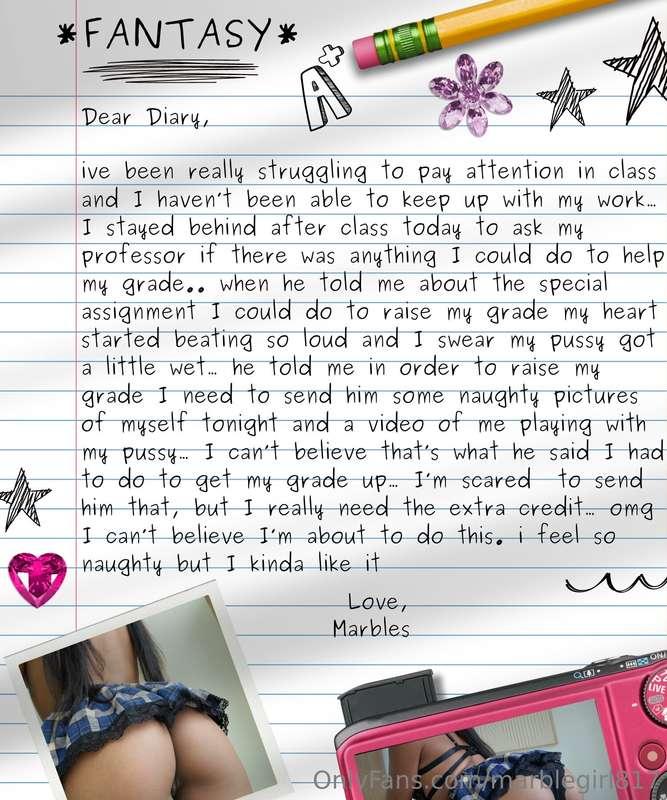 *FANTASY*
A+
Dear Diary,
ive been really struggling to pay attention in class
and I haven't been able to keep up with my work...
I stayed behind after class today to ask my
professor if there was anything I could do to help
my grade.. when he told me about the special
assignment I could do to raise my grade my heart
started beating so loud and I swear my pussy got
a little wet... he told me in order to raise my
grade I need to send him some naughty pictures
of myself tonight and a video of me playing with
my pussy... I can't believe that's what he said I had
to do to get my grade up... I'm scared to send
him that, but I really need the extra credit... omg
I can't believe I'm about to do this. i feel so
naughty but I kinda like it
Love,
Marbles
LIVE
OnlyFans.com/marblegirl81